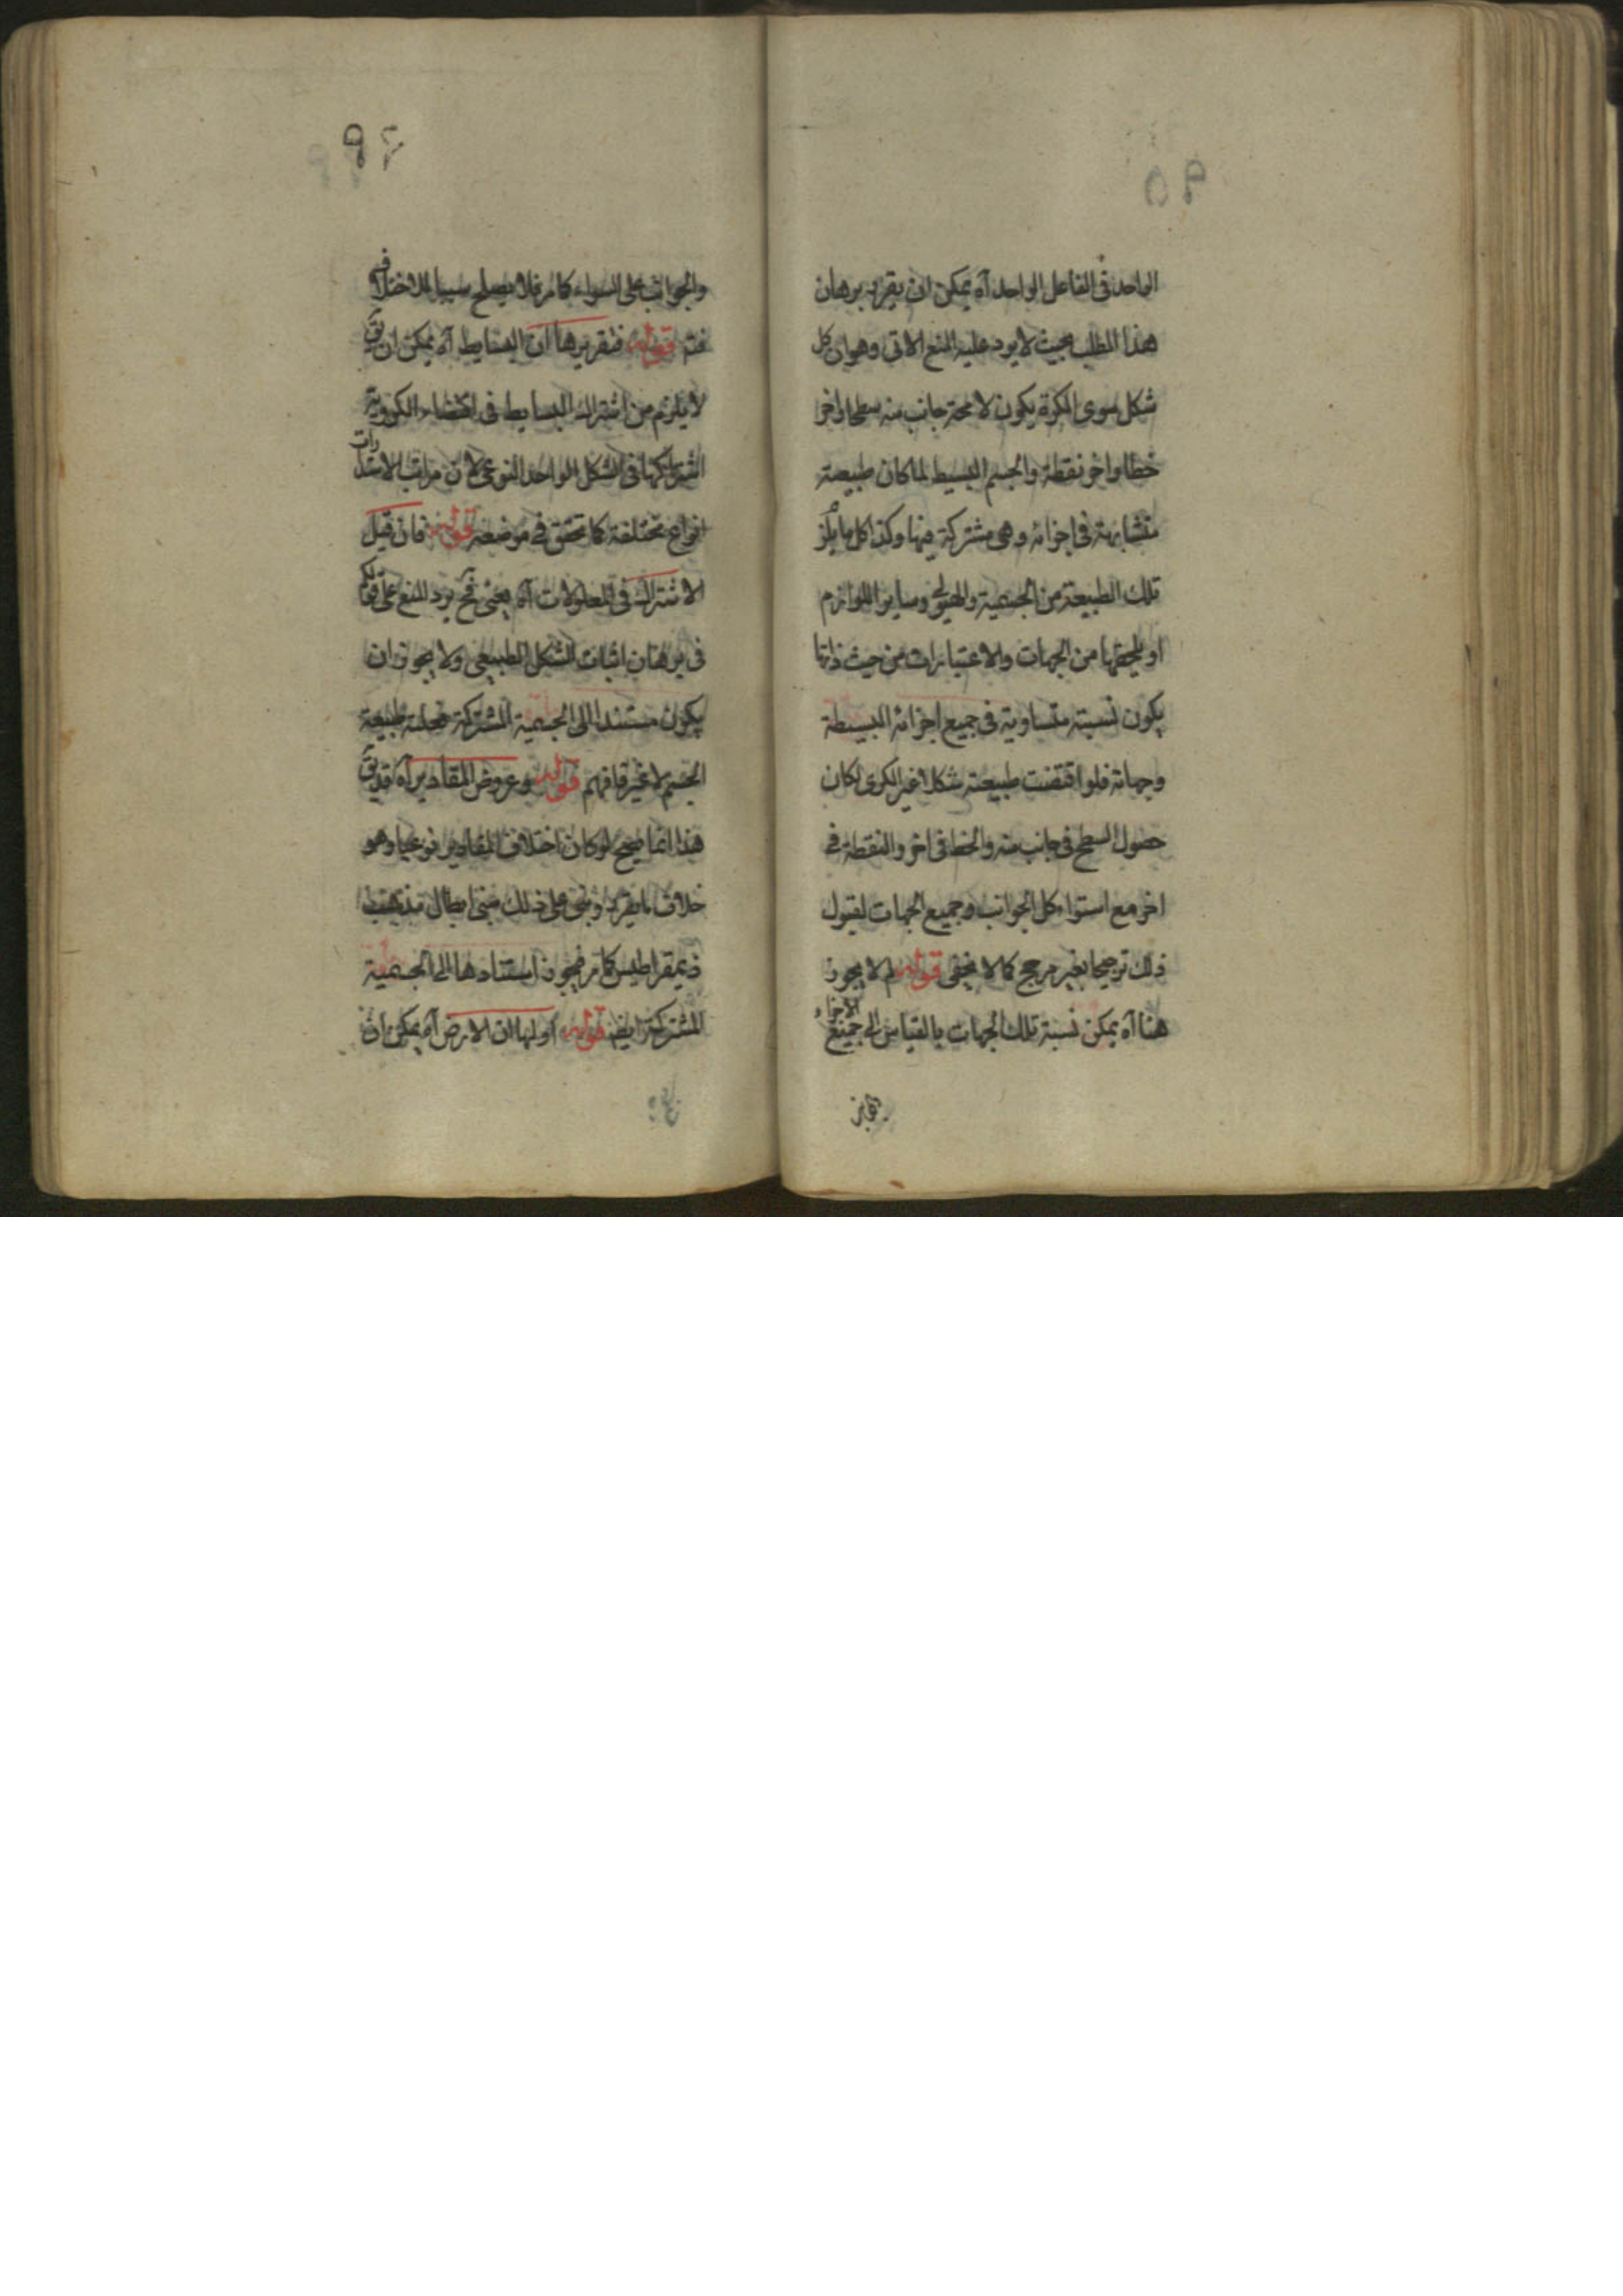 ٩٥
الواحد فى الفاعل الواحد آه يمكن ان يقرر برهان
هذا المطلب بحيث لا يرد عليه المنع الاتى وهو ان كل
شكل سوى الكرة يكون لا محة جانب منه سطحا واخر
خطا واخر نقطة والجسم البسيط لما كان طبيعته
متشابهة فى اجزائه وهى مشتركة فيها وكذا كل ما يلز
تلك الطبيعة من الجسمية والهيولى وساير اللوازم
او يلحقها من الجهات والاعتبارات من حيث ذاتها
يكون نسبته متساوية فى جميع اجزائه البسيطة
وجهاته فلو اقتضت طبيعته شكلا غير الكرى لكان
حصول السطح فى جانب منه والخط فى اخر والنقطة فى
اخر مع استواء كل الجوانب وجميع الجهات لقبول
ذلك ترجيحا بغير مرجح كما لا يخفى قوله لم لا يجوز
هنا آه يمكن نسبة تلك الجهات بالقياس الى جميع الاجزاء
٩٦
والجوانب على السواء كما مر فلا يصلح سببا للاختلاف
فتم قوله فتقريرها ان البسايط آه يمكن ان يق
لا يلزم من اشتراك البسايط فى اقتضاء الكروية
اشتراكها فى الشكل الواحد النوعى لان مراتب الاستدارات
انواع مختلفة كما تحقق فى موضعه قوله فان قيل
الاشتراك فى المعلولات آه يعنى فح يرد المنع على قولكم
فى برهان اثبات الشكل الطبيعى ولا يجوز ان
يكون مستندا الى الجسمية المشتركة فعلته طبيعة
الجسم لا غير فافهم قوله وعروض المقادير آه قد يق
هذا انما يصح لو كان اختلاف المقادير نوعيا وهو
خلاف ما يقرر وبنى على ذلك مبنى ابطال مذهب
ذيمقراطيس كما مر فيجوز استنادها الى الجسمية
المشتركة ايضا قوله اولها ان الارض آه يمكن ان